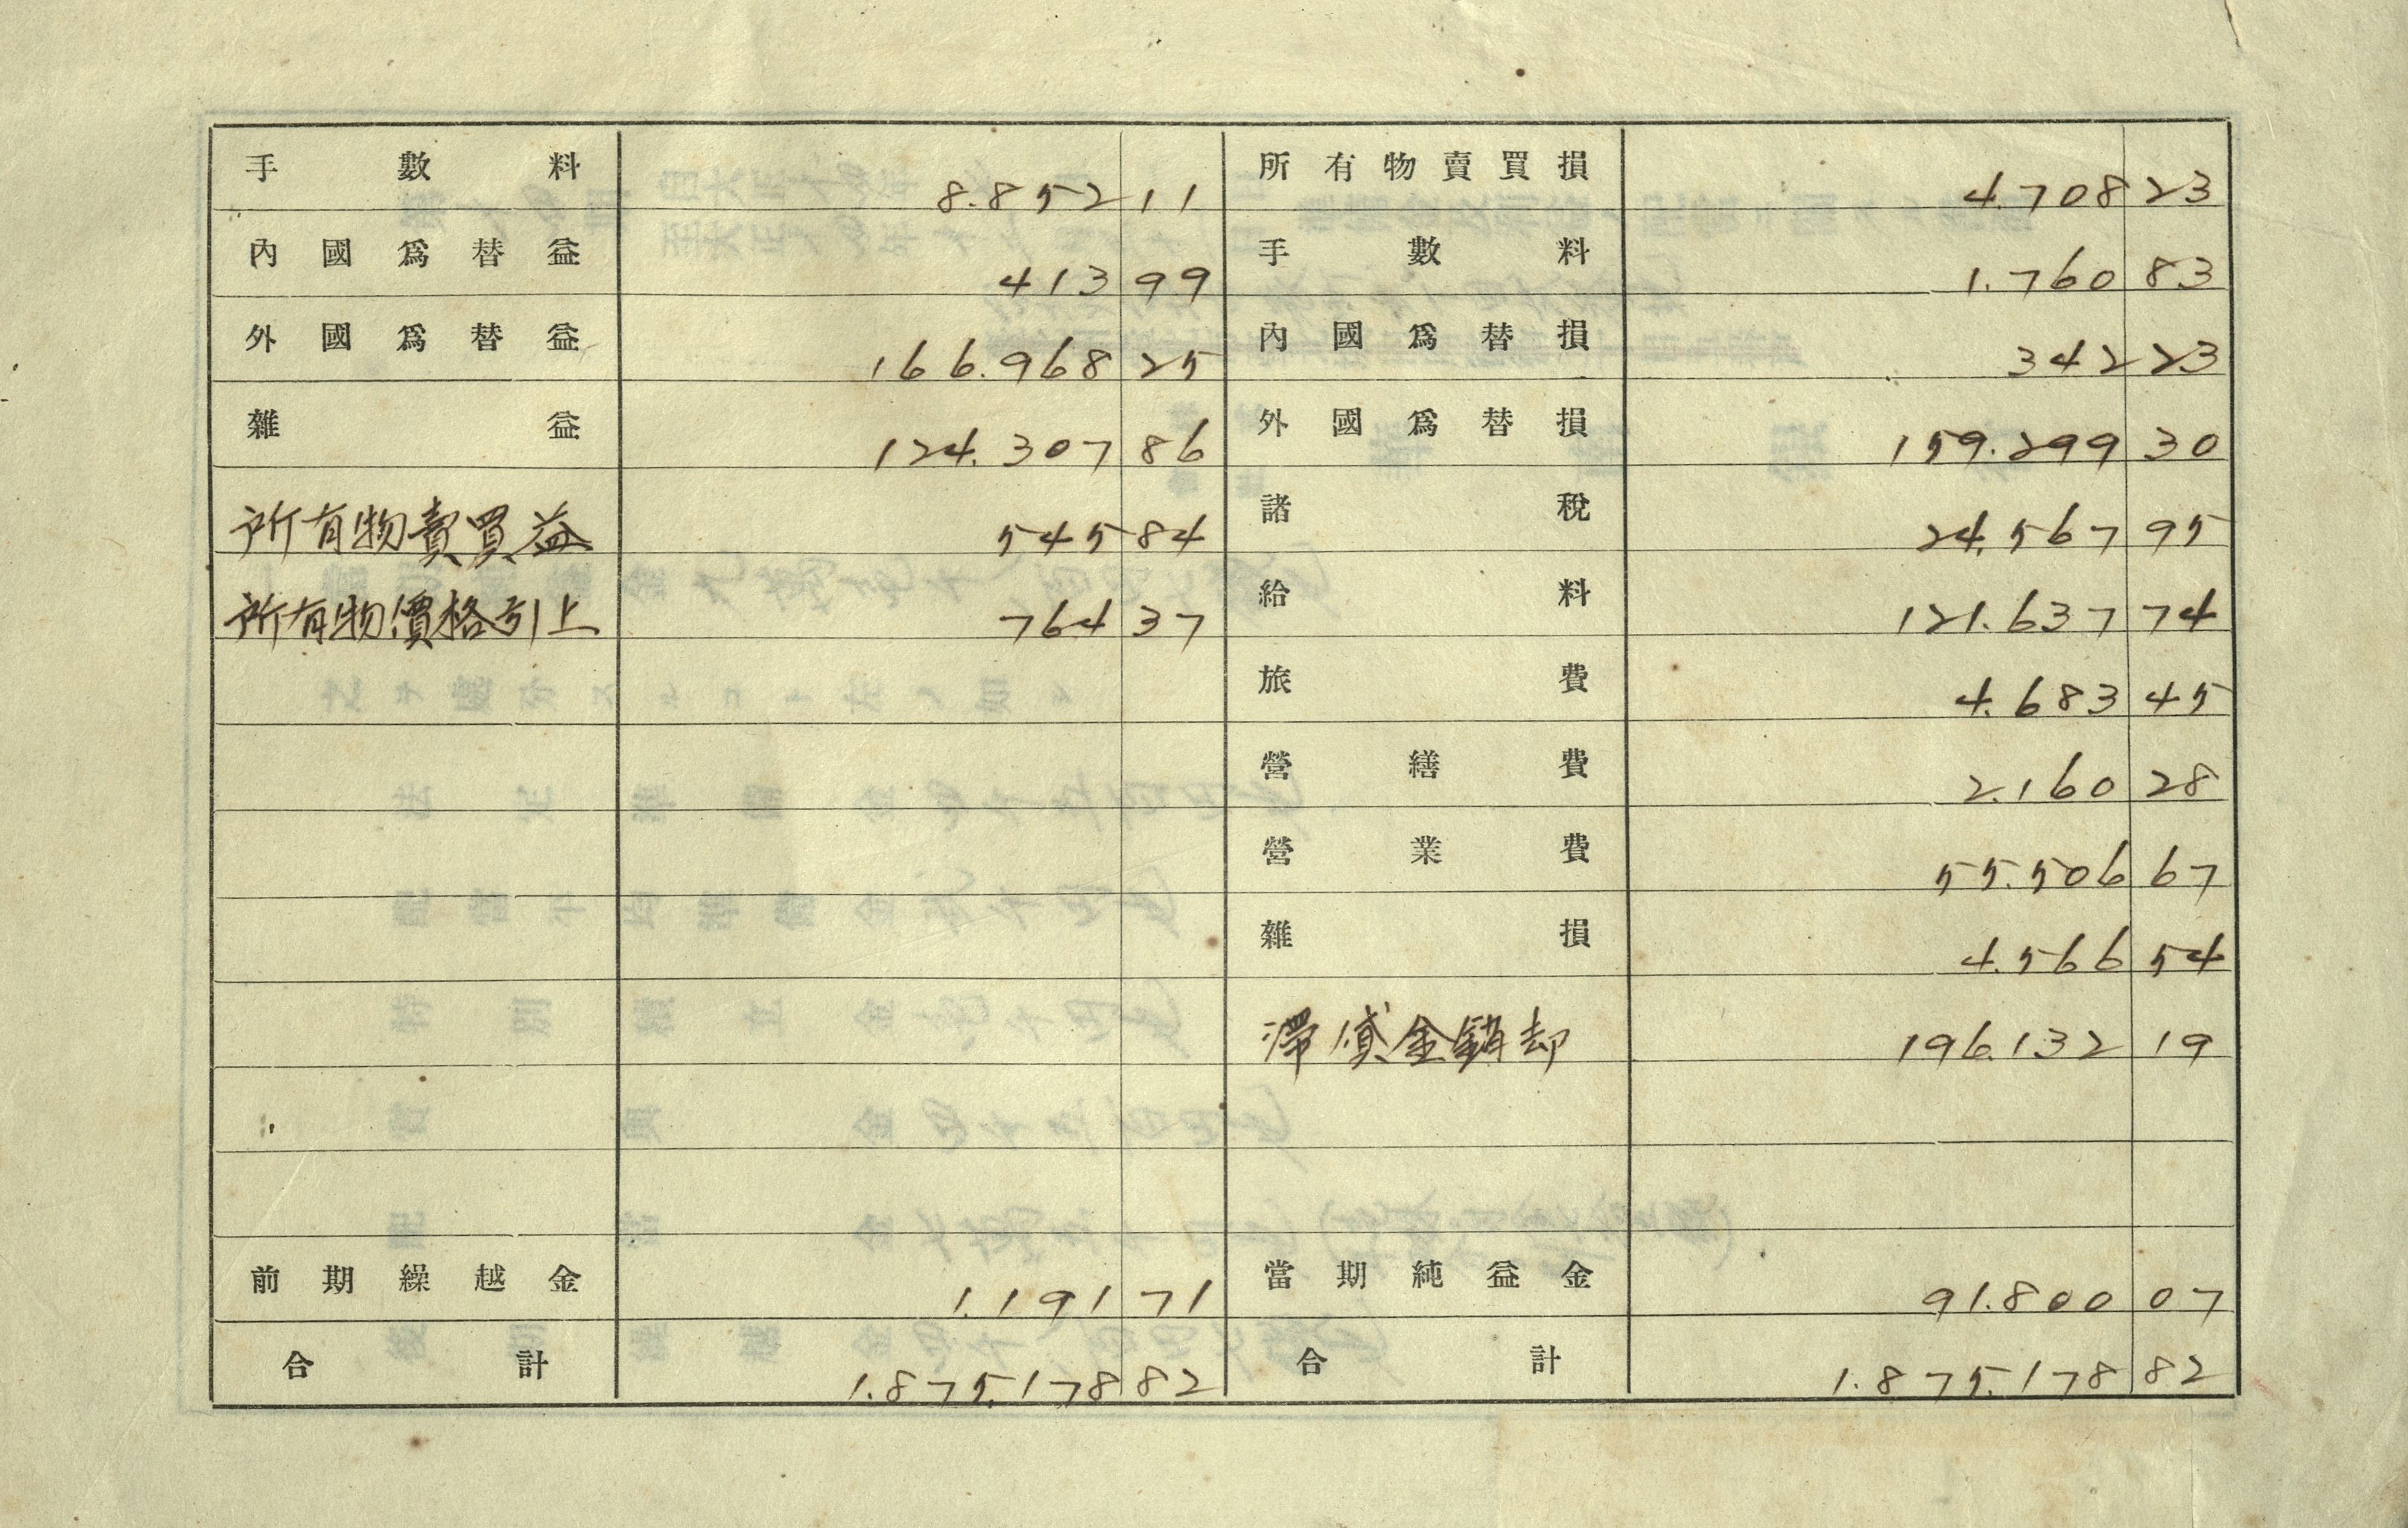 手數料 8.852 11 所有物賣買損 4.708 23
內國爲替益 413 99 手數料 1.760 83
外國爲替益 166.968 25 內國爲替損 342 23
雜益 124.307 86 外國爲替損 159.299 30
所有物賣買益 545 84 諸稅 24.567 95
所有物價格引上 764 37 給料 121.637 74
旅費 4.683 45
營繕費 2.160 28
營業費 55.506 67
雜損 4.566 54
滯貸金銷却 196.132 19
前期繰越金 1.191 71 當期純益金 91.800 07
合計 1.875.178 82 合計 1.875.178 82